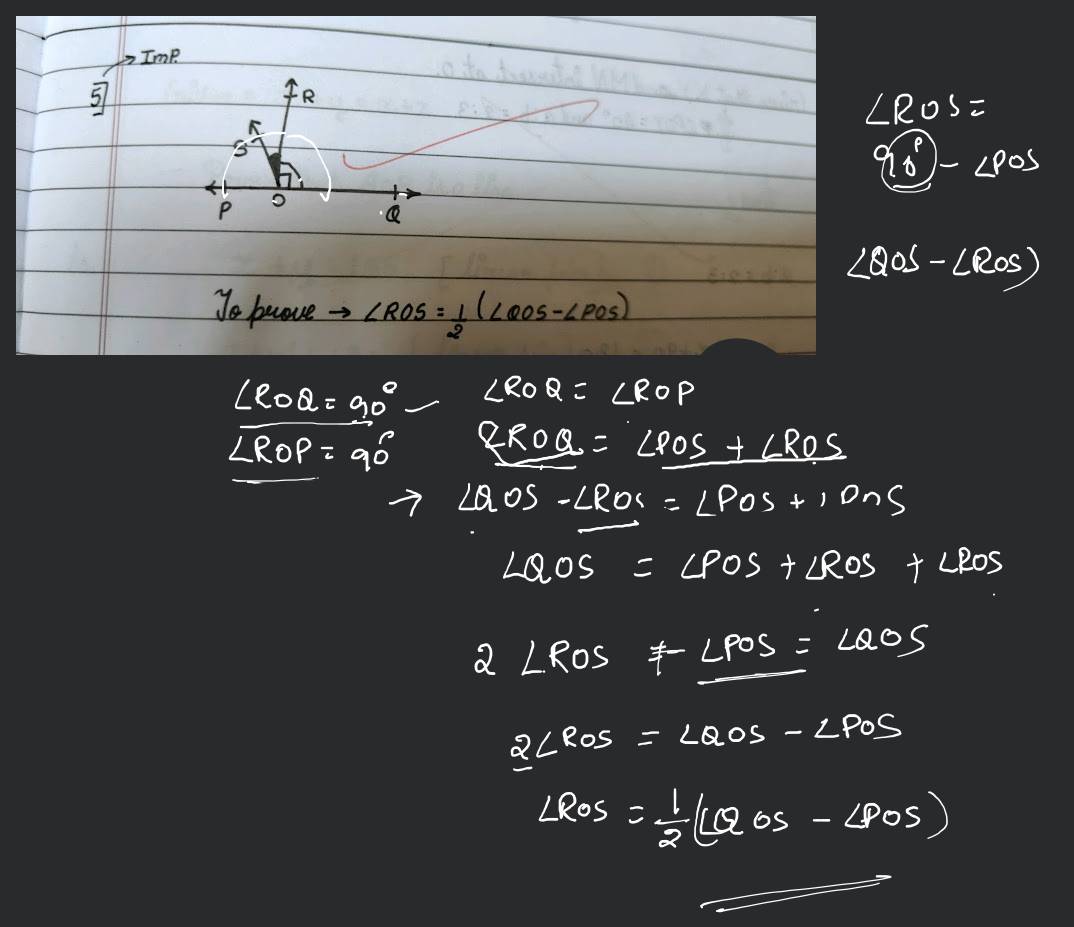 5] → Imp.
R
S
P O Q
To prove → ∠ROS = 1/2 (∠QOS - ∠POS)
∠ROS =
90° - ∠POS
∠QOS - ∠ROS)
∠ROQ = 90°
∠ROP = 90°
∠ROQ = ∠ROP
∠ROQ = ∠POS + ∠ROS
→ ∠QOS - ∠ROS = ∠POS +
∠QOS = ∠POS + ∠ROS + ∠ROS
2 ∠ROS + ∠POS = ∠QOS
2∠ROS = ∠QOS - ∠POS
∠ROS = 1/2 (∠QOS - ∠POS)